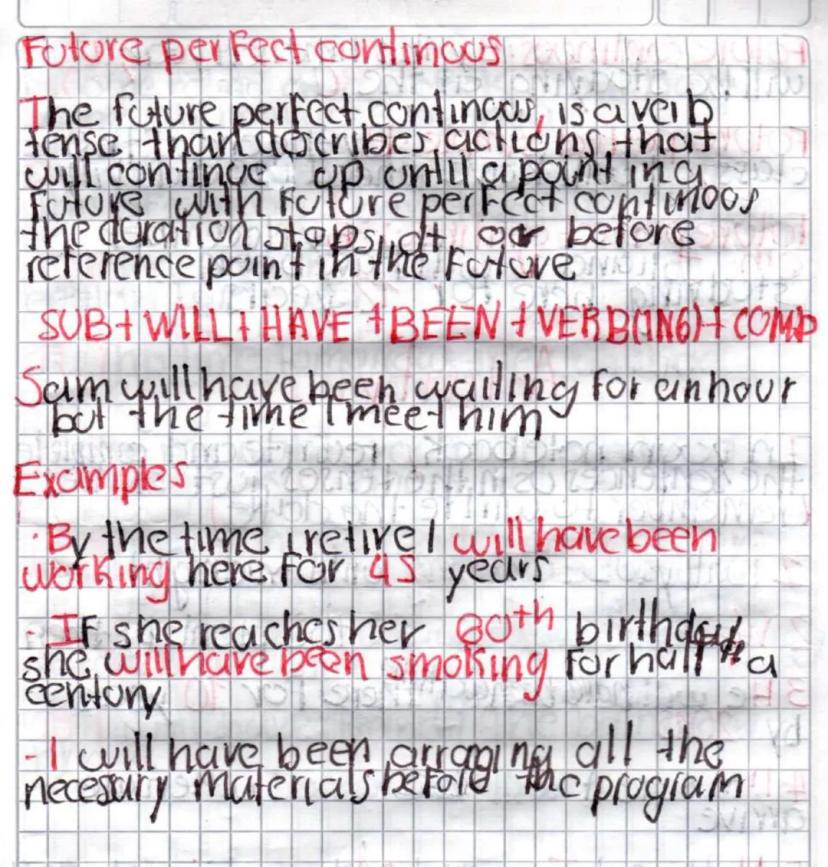 Future perfect continous
The future perfect continous, is a verb
tense than describes actions that
will continue up until a point in a
future with future perfect continuos
the duration stops, at or before
reference point in the future
SUB + WILL + HAVE + BEEN + VERB(ING) + COMP
Sam will have been waiting for an hour
but the time I meet him
Examples
· By the time i retire I will have been
working here for 45 years
- If she reaches her 80th birthday
she will have been smoking for half a
century
- I will have been arranging all the
necesary materials before the program